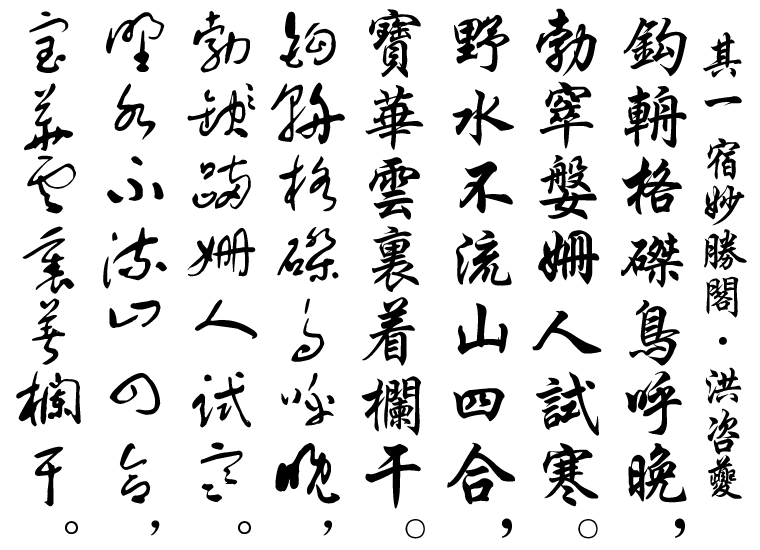 其一 宿妙勝閣・洪咨夔
鈎輈格磔鳥呼晚，
勃窣媻姍人試寒。
野水不流山四合，
寶華雲裏着欄干。
鈎輈格磔鳥呼晚，
勃蹣姍人試寒。
野水不流山四合，
宝華雲裏着欄干。